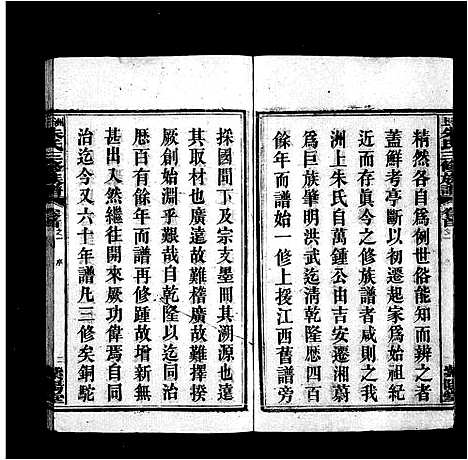 精然各自爲例世俗能知而辨之者
蓋鮮考亭斷以初遷起家爲始祖紀
近而尊尤今之修族譜者咸則之我
洲上朱氏自萬鍾公由吉安遷湘蔚
爲巨族肇明洪武迄清乾隆歷四百
餘年而譜始一修上援江西舊譜旁
採國間下及宗支墨間其溯源也遠
其取材也廣遠故難稽廣故難擇揆
厥創始淵乎艱哉自乾隆以迄同治
歷百有餘年而譜再修踵故增新無
出入然繼往開來厥功偉焉自同
治迄今又六十年譜凡三修矣銅駝
洲上朱氏三修族譜
卷首之
序
二
紫陽堂